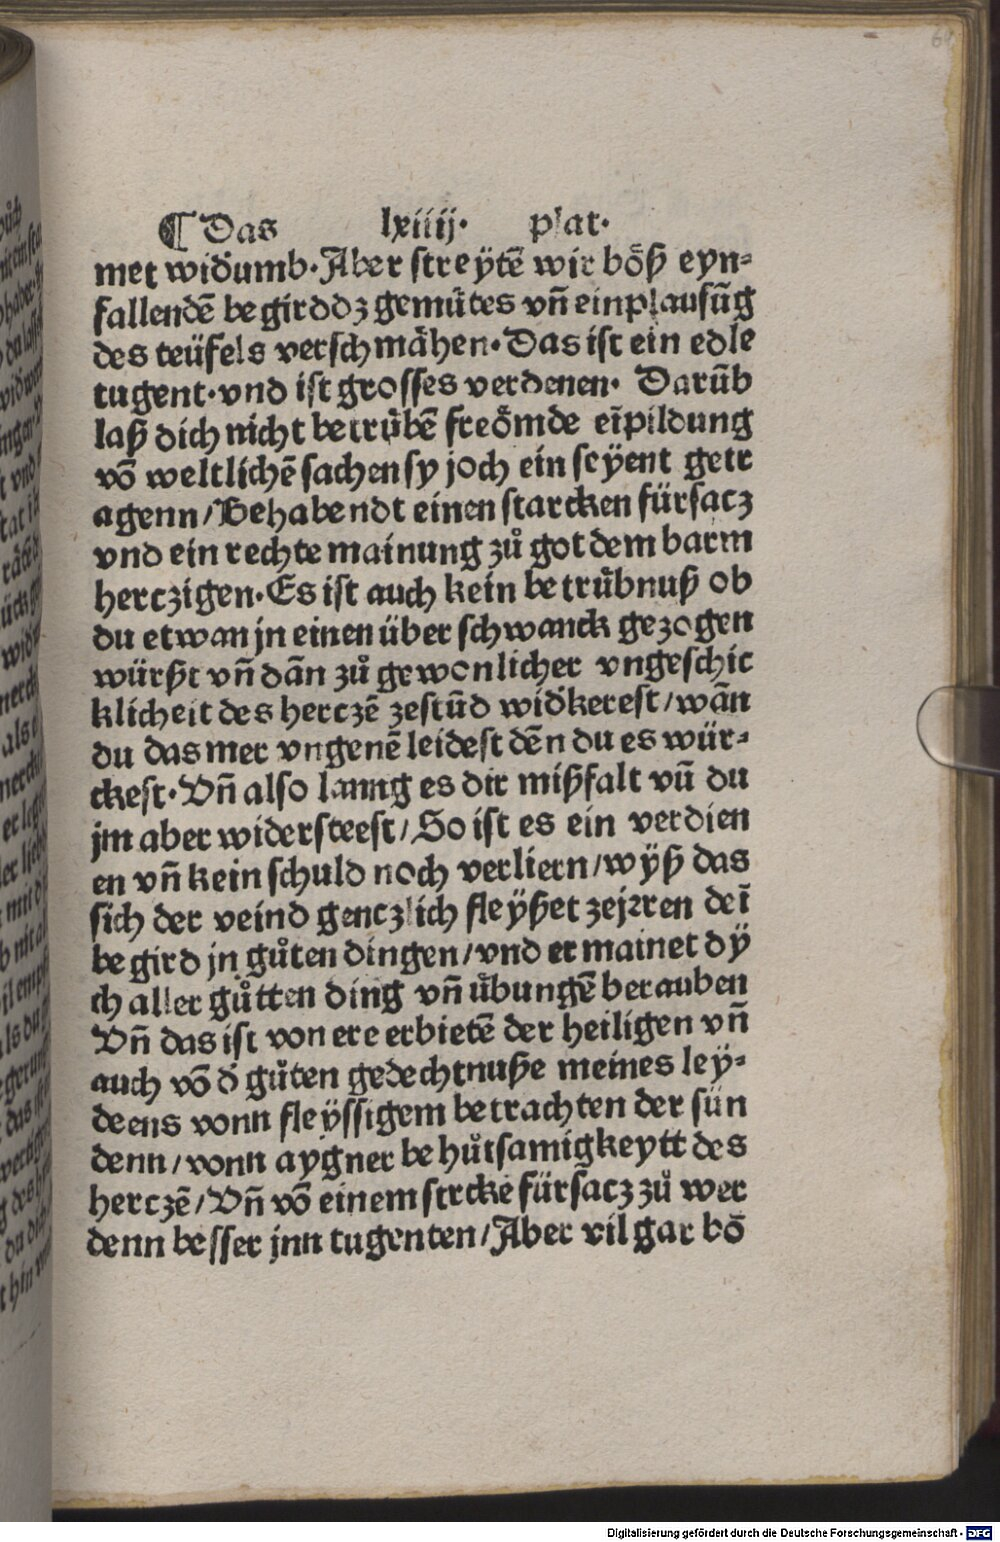 ¶ Das lxiiij. plat.
met widumb. Aber streÿtē wir bőß eyn⸗
fallendē begird dʒ gemůtes vn̄ einplausūg
des teüfels verschmåhen. Das ist ein edle
tugent. vnd ist grosses verdenen. Darūb
laß dich nicht betrůbē freőmde eīpildung
vō weltlichē sachen sy joch ein seÿent getr
agenn/ Behabendt einen starcken fürsacz
vnd ein rechte mainung zů got dem barm
herczigen. Es ist auch kein betrůbnuß ob
du etwan jn einen über schwanck gezogen
würßt vn̄ dān zů gewonlicher vngeschic
klicheit des herczē zestūd widkerest/ wān
du das mer vngenē leidest dēn du es wür⸗
ckest. Vn̄ also lanng es dir mißfalt vn̄ du
jm aber widersteest/ So ist es ein verdien
en vn̄ kein schuld noch verliern/ wÿß das
sich der veind genczlich fleÿßet zejrren deī
begird jn gůten dingen/ vnd er mainet dÿ
ch aller gůtten ding vn̄ ůbungē berauben
Vn̄ das ist von ere erbietē der heiligen vn̄
auch vō d̄ gůten gedechtnuße meines ley⸗
deens vonn fleÿssigem betrachten der sün
denn/ vonn aygner behůtsamigkeytt des
herczē/ Vn̄ vō einem strckē fürsacz zů wer
denn besser jnn tugenten/ Aber vil gar bő